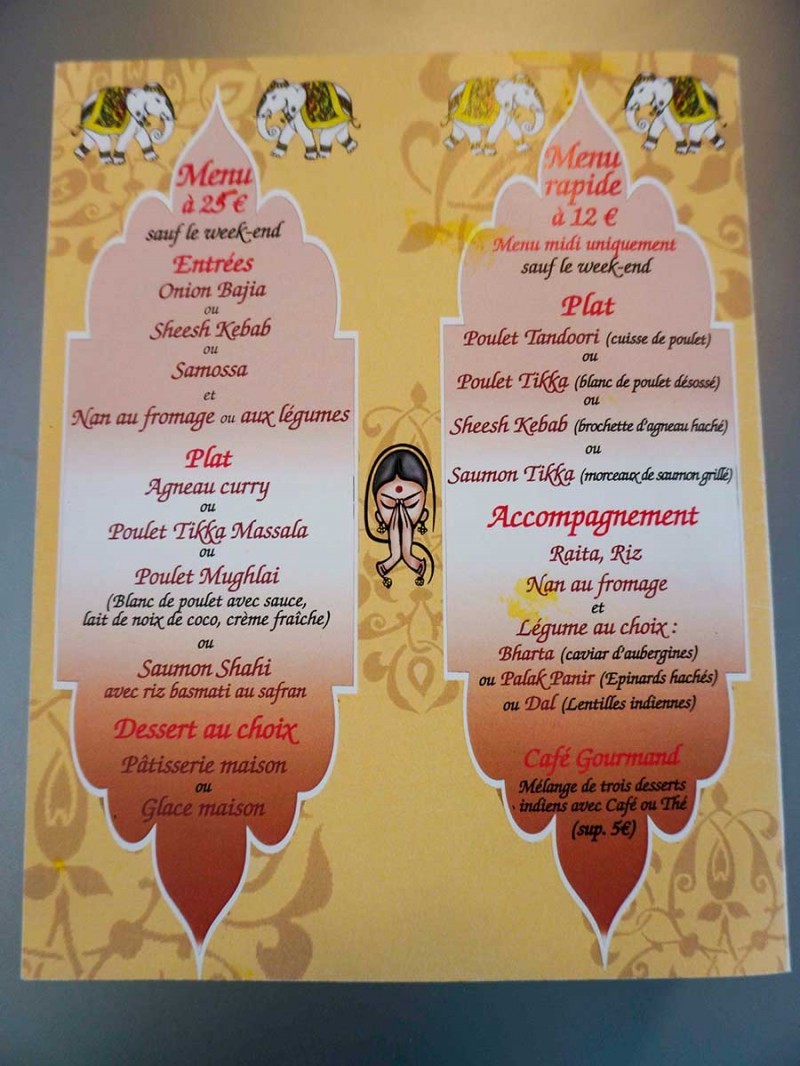 Menu
à 25 €
sauf le week-end
Entrées
Onion Bajia
ou
Sheesh Kebab
ou
Samossa
et
Nan au fromage ou aux légumes
Plat
Agneau curry
ou
Poulet Tikka Massala
ou
Poulet Mughlai
(Blanc de poulet avec sauce,
lait de noix de coco, crème fraîche)
ou
Saumon Shahi
avec riz basmati au safran
Dessert au choix
Pâtisserie maison
ou
Glace maison
Menu
rapide
à 12 €
Menu midi uniquement
sauf le week-end
Plat
Poulet Tandoori (cuisse de poulet)
ou
Poulet Tikka (blanc de poulet désossé)
ou
Sheesh Kebab (brochette d'agneau haché)
ou
Saumon Tikka (morceaux de saumon grillé)
Accompagnement
Raita, Riz
Nan au fromage
et
Légume au choix :
Bharta (caviar d'aubergines)
ou Palak Panir (Epinards hachés)
ou Dal (Lentilles indiennes)
Café Gourmand
Mélange de trois desserts
indiens avec Café ou Thé
(sup. 5€)